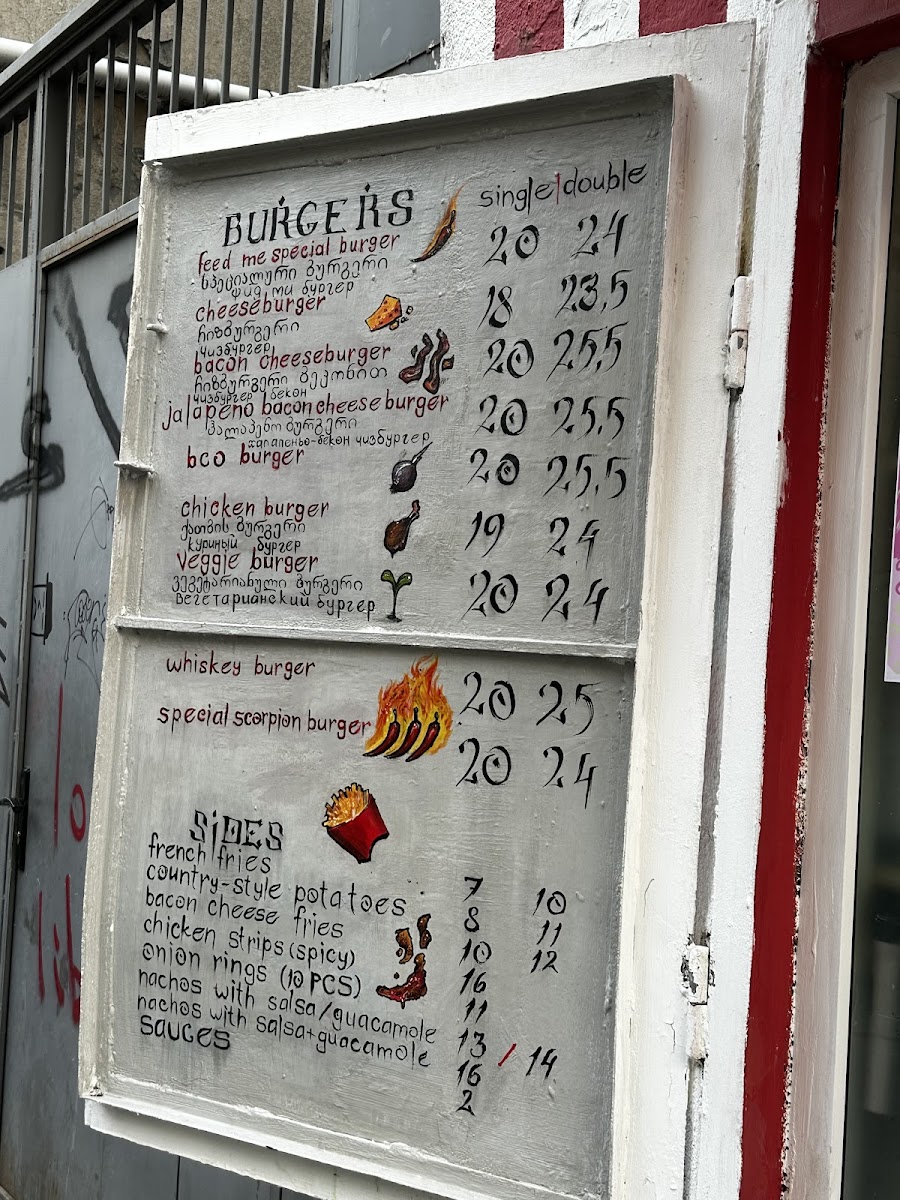 BURGERS single|double
feed me special burger 20 24
სპეციალური ბურგერი
фид ми бургер
cheeseburger 18 23,5
ჩიზბურგერი
чизбургер
bacon cheeseburger 20 25,5
ჩიზბურგერი ბეკონით
чизбургер бекон
jalapeno bacon cheeseburger 20 25,5
ჰალაპენო ბურგერი
халапеньо-бекон чизбургер
bco burger 20 25,5
chicken burger 19 24
ქათმის ბურგერი
куриный бургер
veggie burger 20 24
ვეგეტარიანული ბურგერი
вегетарианский бургер
whiskey burger 20 25
special scorpion burger 20 24
SIDES
french fries 7 10
country-style potatoes 8 11
bacon cheese fries 10 12
chicken strips (spicy) 16
onion rings (10 PCS) 11
nachos with salsa/guacamole 13 / 14
nachos with salsa+guacamole 16
sauces 2